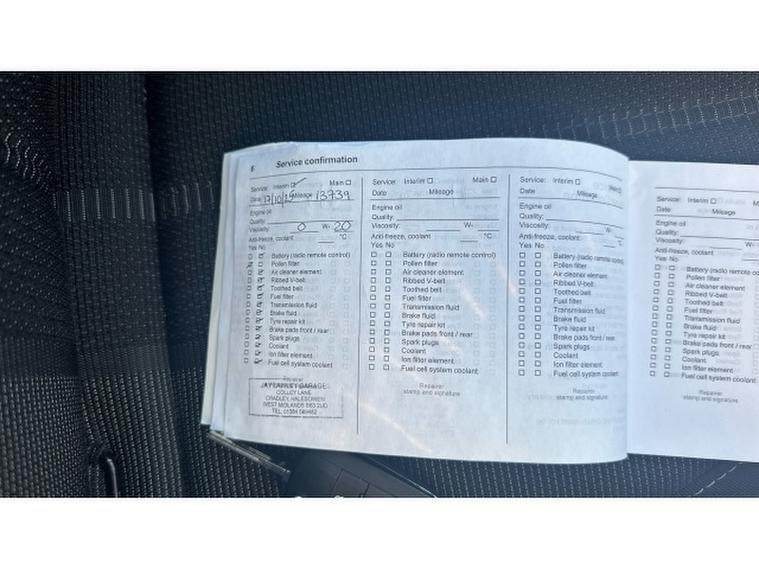 6 Service confirmation
Service: Interim Main
Date 17/10/25 Mileage 13739
Engine oil
Quality:
Viscosity: 0 W- 20
Anti-freeze, coolant °C
Yes No
Battery (radio remote control)
Pollen filter
Air cleaner element
Ribbed V-belt
Toothed belt
Fuel filter
Transmission fluid
Brake fluid
Tyre repair kit
Brake pads front / rear
Spark plugs
Coolant
Ion filter element
Fuel cell system coolant
Repairer
GARAGE
COLLEY LANE
CRADLEY, HALESOWEN
WEST MIDLANDS B63 2UD
TEL. 01384
Service: Interim Main
Date Mileage
Engine oil
Quality:
Viscosity: W-
Anti-freeze, coolant °C
Yes No
Battery (radio remote control)
Pollen filter
Air cleaner element
Ribbed V-belt
Toothed belt
Fuel filter
Transmission fluid
Brake fluid
Tyre repair kit
Brake pads front / rear
Spark plugs
Coolant
Ion filter element
Fuel cell system coolant
Repairer
stamp and signature
Service: Interim Main
Date Mileage
Engine oil
Quality:
Viscosity: W-
Anti-freeze, coolant °C
Yes No
Battery (radio remote control)
Pollen filter
Air cleaner element
Ribbed V-belt
Toothed belt
Fuel filter
Transmission fluid
Brake fluid
Tyre repair kit
Brake pads front / rear
Spark plugs
Coolant
Ion filter element
Fuel cell system coolant
Repairer
stamp and signature
Service: Interim Main
Date Mileage
Engine oil
Quality:
Viscosity: W-
Anti-freeze, coolant
Yes No
Battery (radio remote
Pollen filter
Air cleaner element
Ribbed V-belt
Toothed belt
Fuel filter
Transmission fluid
Brake fluid
Tyre repair kit
Brake pads front / rear
Spark plugs
Coolant
Ion filter element
Fuel cell system coolant
Repairer
stamp and signature